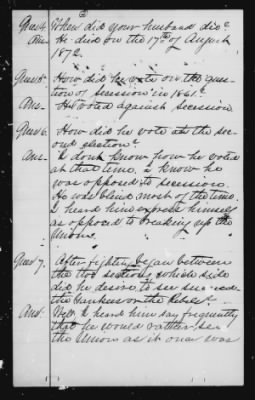 Ques 4. When did your husband die?
Ans. He died on the 17th of August
1872.
Ques 5. How did he vote on the ques-
tion of secession in 1861?
Ans- He voted against secession
Ques 6. How did he vote at the sec-
ond election?
Ans- I don't know how he voted
at that time. I know he
was opposed to secession.
He was blind most of the time.
I heard him express himself
as opposed to breaking up the
Union.
Ques 7. After fighting began between
the two sections, which side
did he desire to see succeed
the Yankees or the Rebels?
Ans. Well I heard him say frequently
that he would rather see
the Union as it once was